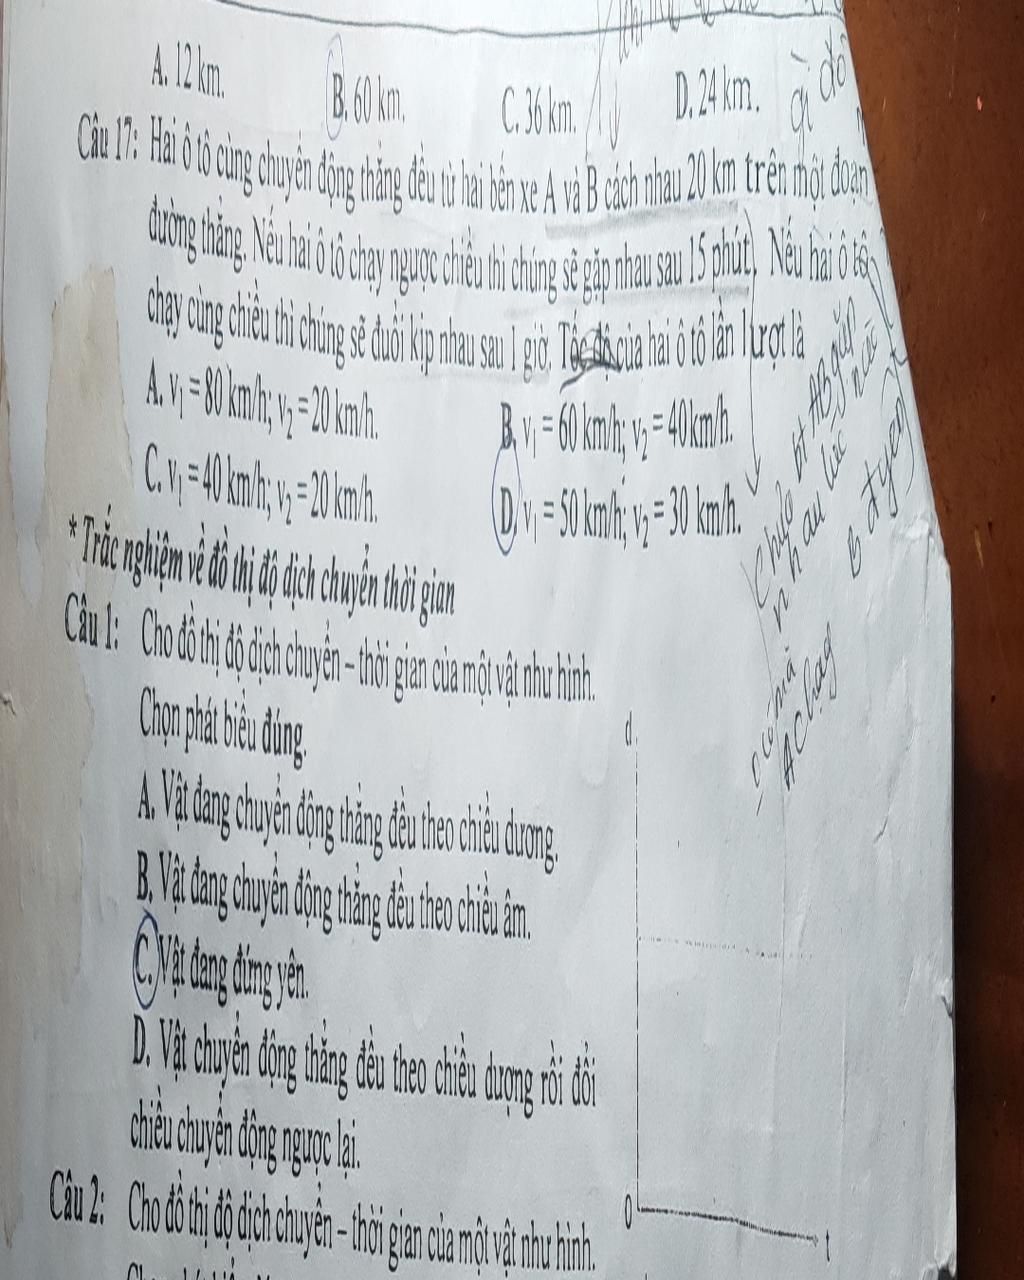 A. 12 km. B. 60 km. C. 36 km. D. 24 km.
gì đó
Câu 17: Hai ô tô cùng chuyển động thẳng đều từ hai bến xe A và B cách nhau 20 km trên một đoạn
đường thẳng. Nếu hai ô tô chạy ngược chiều thì chúng sẽ gặp nhau sau 15 phút. Nếu hai ô tô
chạy cùng chiều thì chúng sẽ đuổi kịp nhau sau 1 giờ. Tốc độ của hai ô tô lần lượt là
A. v₁ = 80 km/h; v₂ = 20 km/h. B. v₁ = 60 km/h; v₂ = 40km/h.
C. v₁ = 40 km/h; v₂ = 20 km/h. D. v₁ = 50 km/h; v₂ = 30 km/h.
* Trắc nghiệm về đồ thị độ dịch chuyển thời gian
Câu 1: Cho đồ thị độ dịch chuyển – thời gian của một vật như hình.
Chọn phát biểu đúng.
A. Vật đang chuyển động thẳng đều theo chiều dương.
B. Vật đang chuyển động thẳng đều theo chiều âm.
C. Vật đang đứng yên.
D. Vật chuyển động thẳng đều theo chiều dượng rồi đổi
chiều chuyển động ngược lại.
d
0
t
Câu 2: Cho đồ thị độ dịch chuyển – thời gian của một vật như hình.